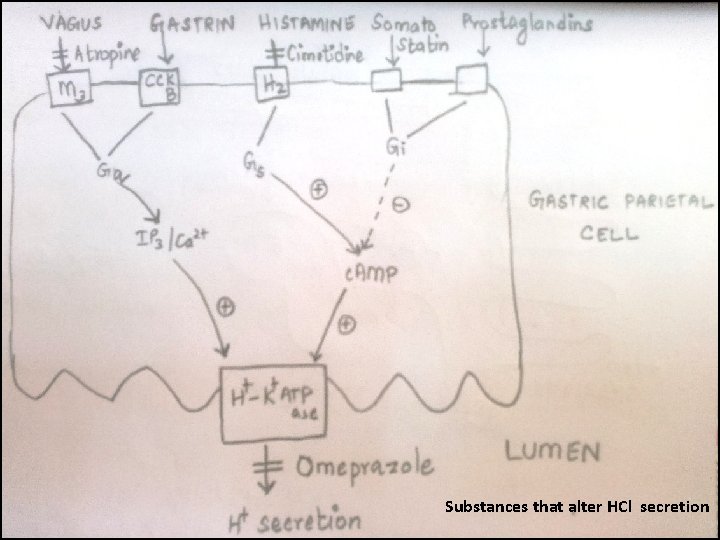 VAGUS GASTRIN HISTAMINE Somato Prostaglandins
statin
Atropine Cimetidine
M3 CCK B H2
Gq Gs Gi
⊕ ⊖
IP3/Ca2+
cAMP
⊕ ⊕
GASTRIC PARIETAL
CELL
H+-K+ ATP
ase
LUMEN
Omeprazole
H+ secretion
Substances that alter HCl secretion